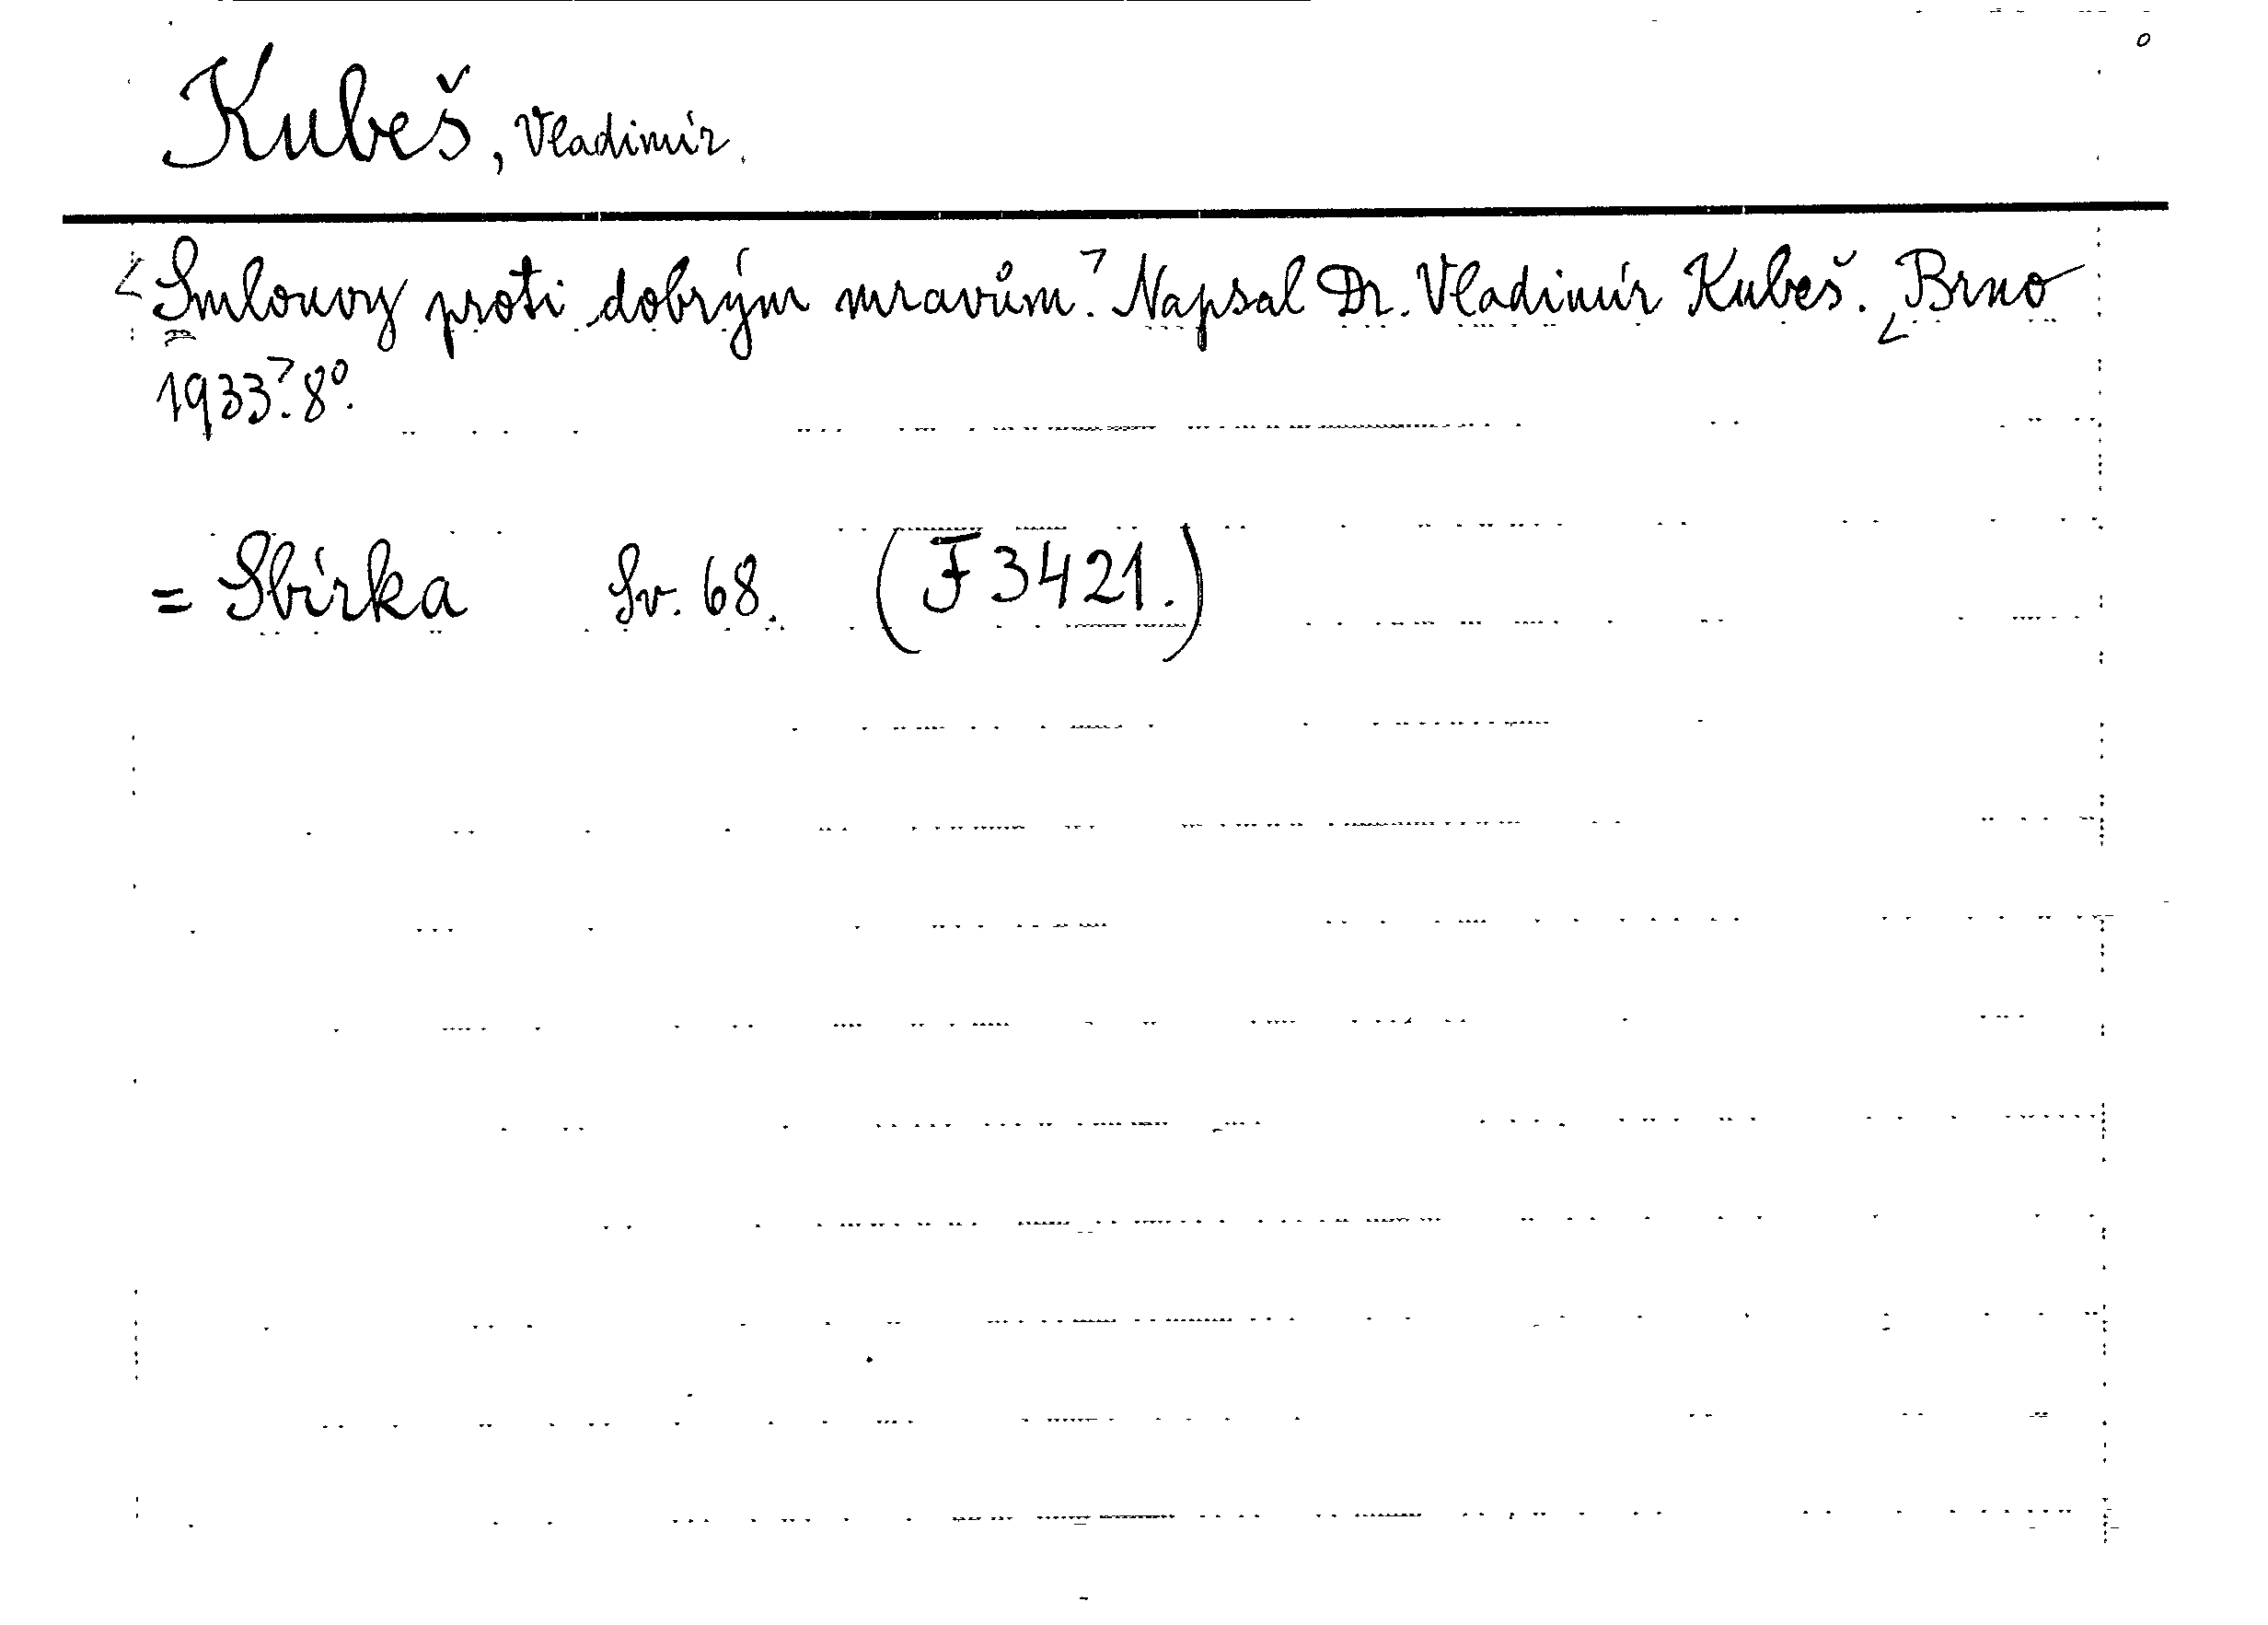 Kubeš, Vladimír.
Smlouvy proti dobrým mravům. Napsal Dr. Vladimír Kubeš. Brno
1933. 8°.
= Sbírka Sv. 68. (F 3421.)